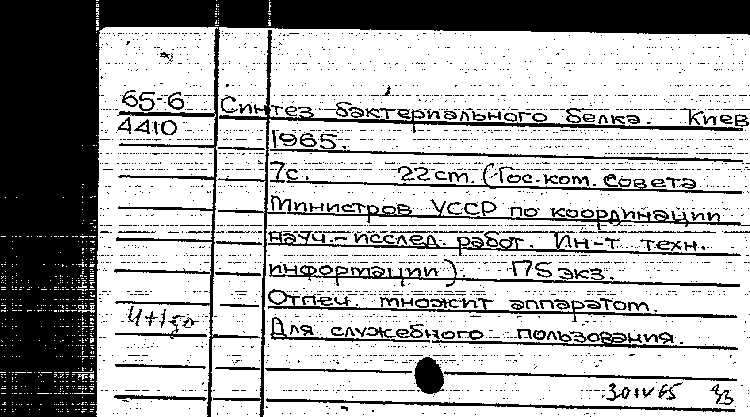 65-6 Синтез бактериального белка. Киев
4410 1965.
7с. 22 ст. (Гос. ком. Совета
Министров УССР по координации
науч.-исслед. работ. Ин-т техн.
информации). 175 экз.
Отпеч. множит аппаратом.
Для служебного пользования.
30 IV 65